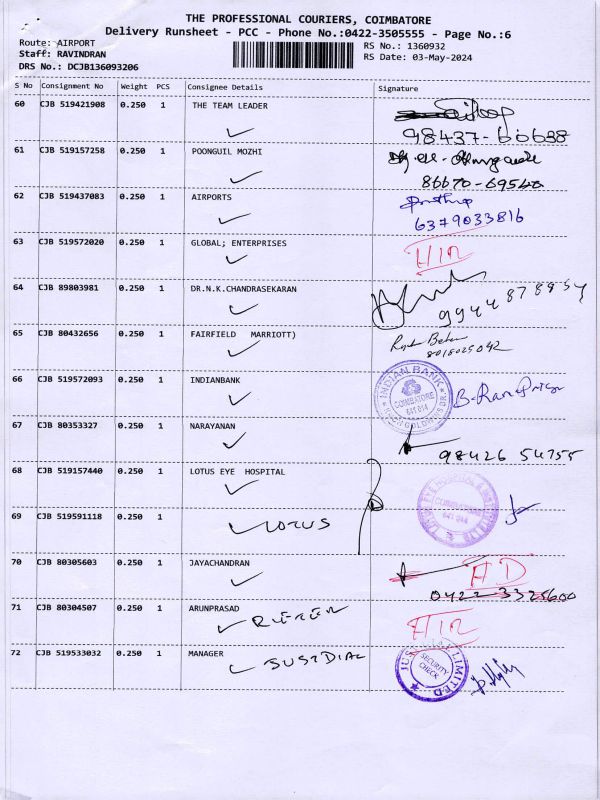 THE PROFESSIONAL COURIERS, COIMBATORE
Delivery Runsheet - PCC - Phone No.:0422-3505555 - Page No.:6
Route: AIRPORT
Staff: RAVINDRAN
DRS No.: DCJB136093206
RS No.: 1360932
RS Date: 03-May-2024
S No Consignment No Weight PCS Consignee Details Signature
60 CJB 519421908 0.250 1 THE TEAM LEADER
98437-60638
61 CJB 519157258 0.250 1 POONGUIL MOZHI
86670-69540
62 CJB 519437083 0.250 1 AIRPORTS
6379033816
63 CJB 519572020 0.250 1 GLOBAL; ENTERPRISES
64 CJB 89803981 0.250 1 DR.N.K.CHANDRASEKARAN
65 CJB 80432656 0.250 1 FAIRFIELD MARRIOTT)
8018025042
66 CJB 519572093 0.250 1 INDIANBANK
INDIAN BANK
COIMBATORE
641 014
67 CJB 80353327 0.250 1 NARAYANAN
98426 54755
68 CJB 519157440 0.250 1 LOTUS EYE HOSPITAL
69 CJB 519591118 0.250 1 LOTUS
70 CJB 80305603 0.250 1 JAYACHANDRAN
AD
0422-3325600
71 CJB 80304507 0.250 1 ARUNPRASAD
72 CJB 519533032 0.250 1 MANAGER
JUSTDIAL
SECURITY
CHECK
LIMITED